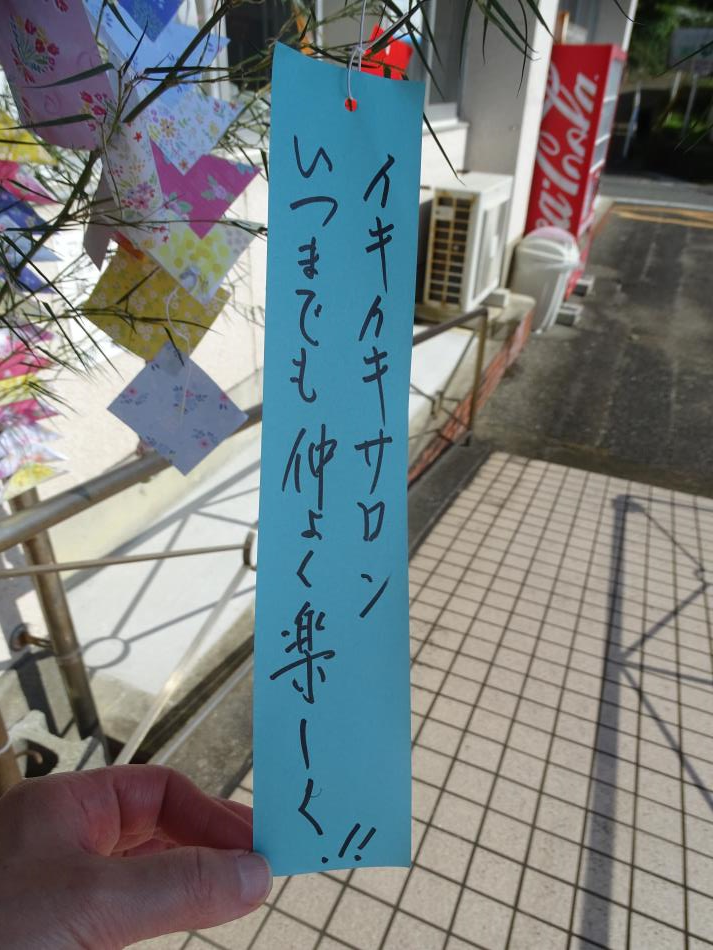 イキイキサロン
いつまでも仲よく楽しく!!
Coca-Cola